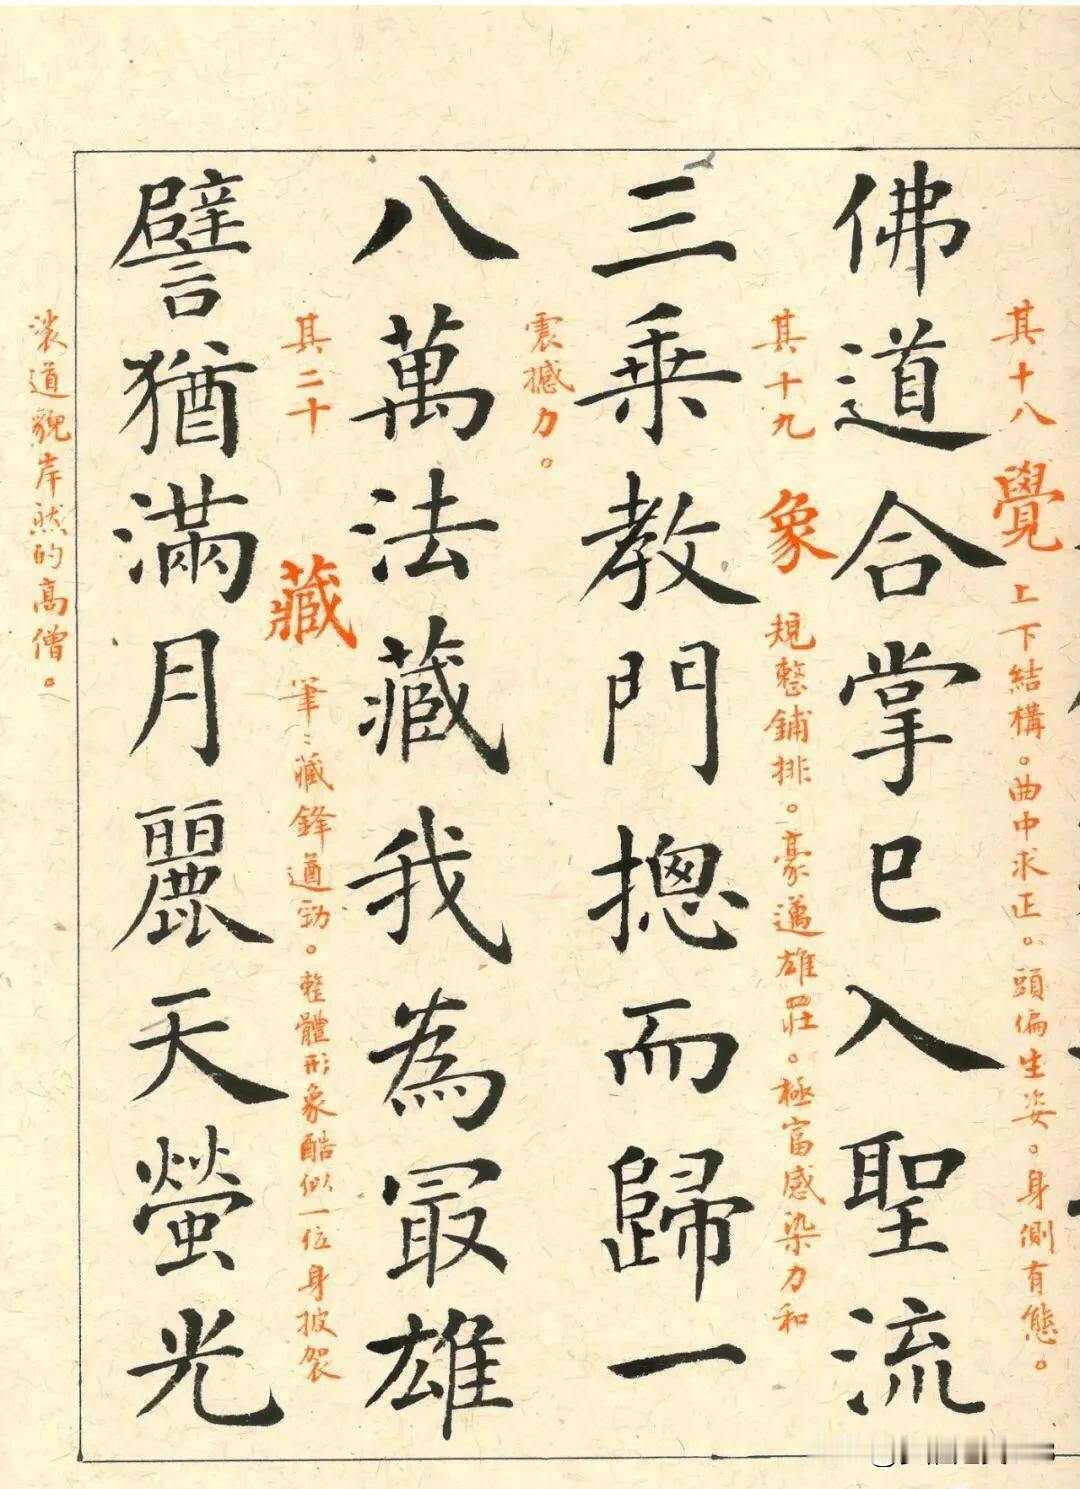 其十八 覺 上下結構。曲中求正。頭偏生姿。身側有態。
佛道合掌已入聖流
其十九 象 規整鋪排。豪邁雄莊。極富感染力和
三乗教門摠而歸一
震撼力。
八萬法藏我為冣雄
其二十 藏 筆筆藏鋒遒勁。整體形象酷似一位身披袈
譬猶滿月麗天螢光
裟道貌岸然的高僧。